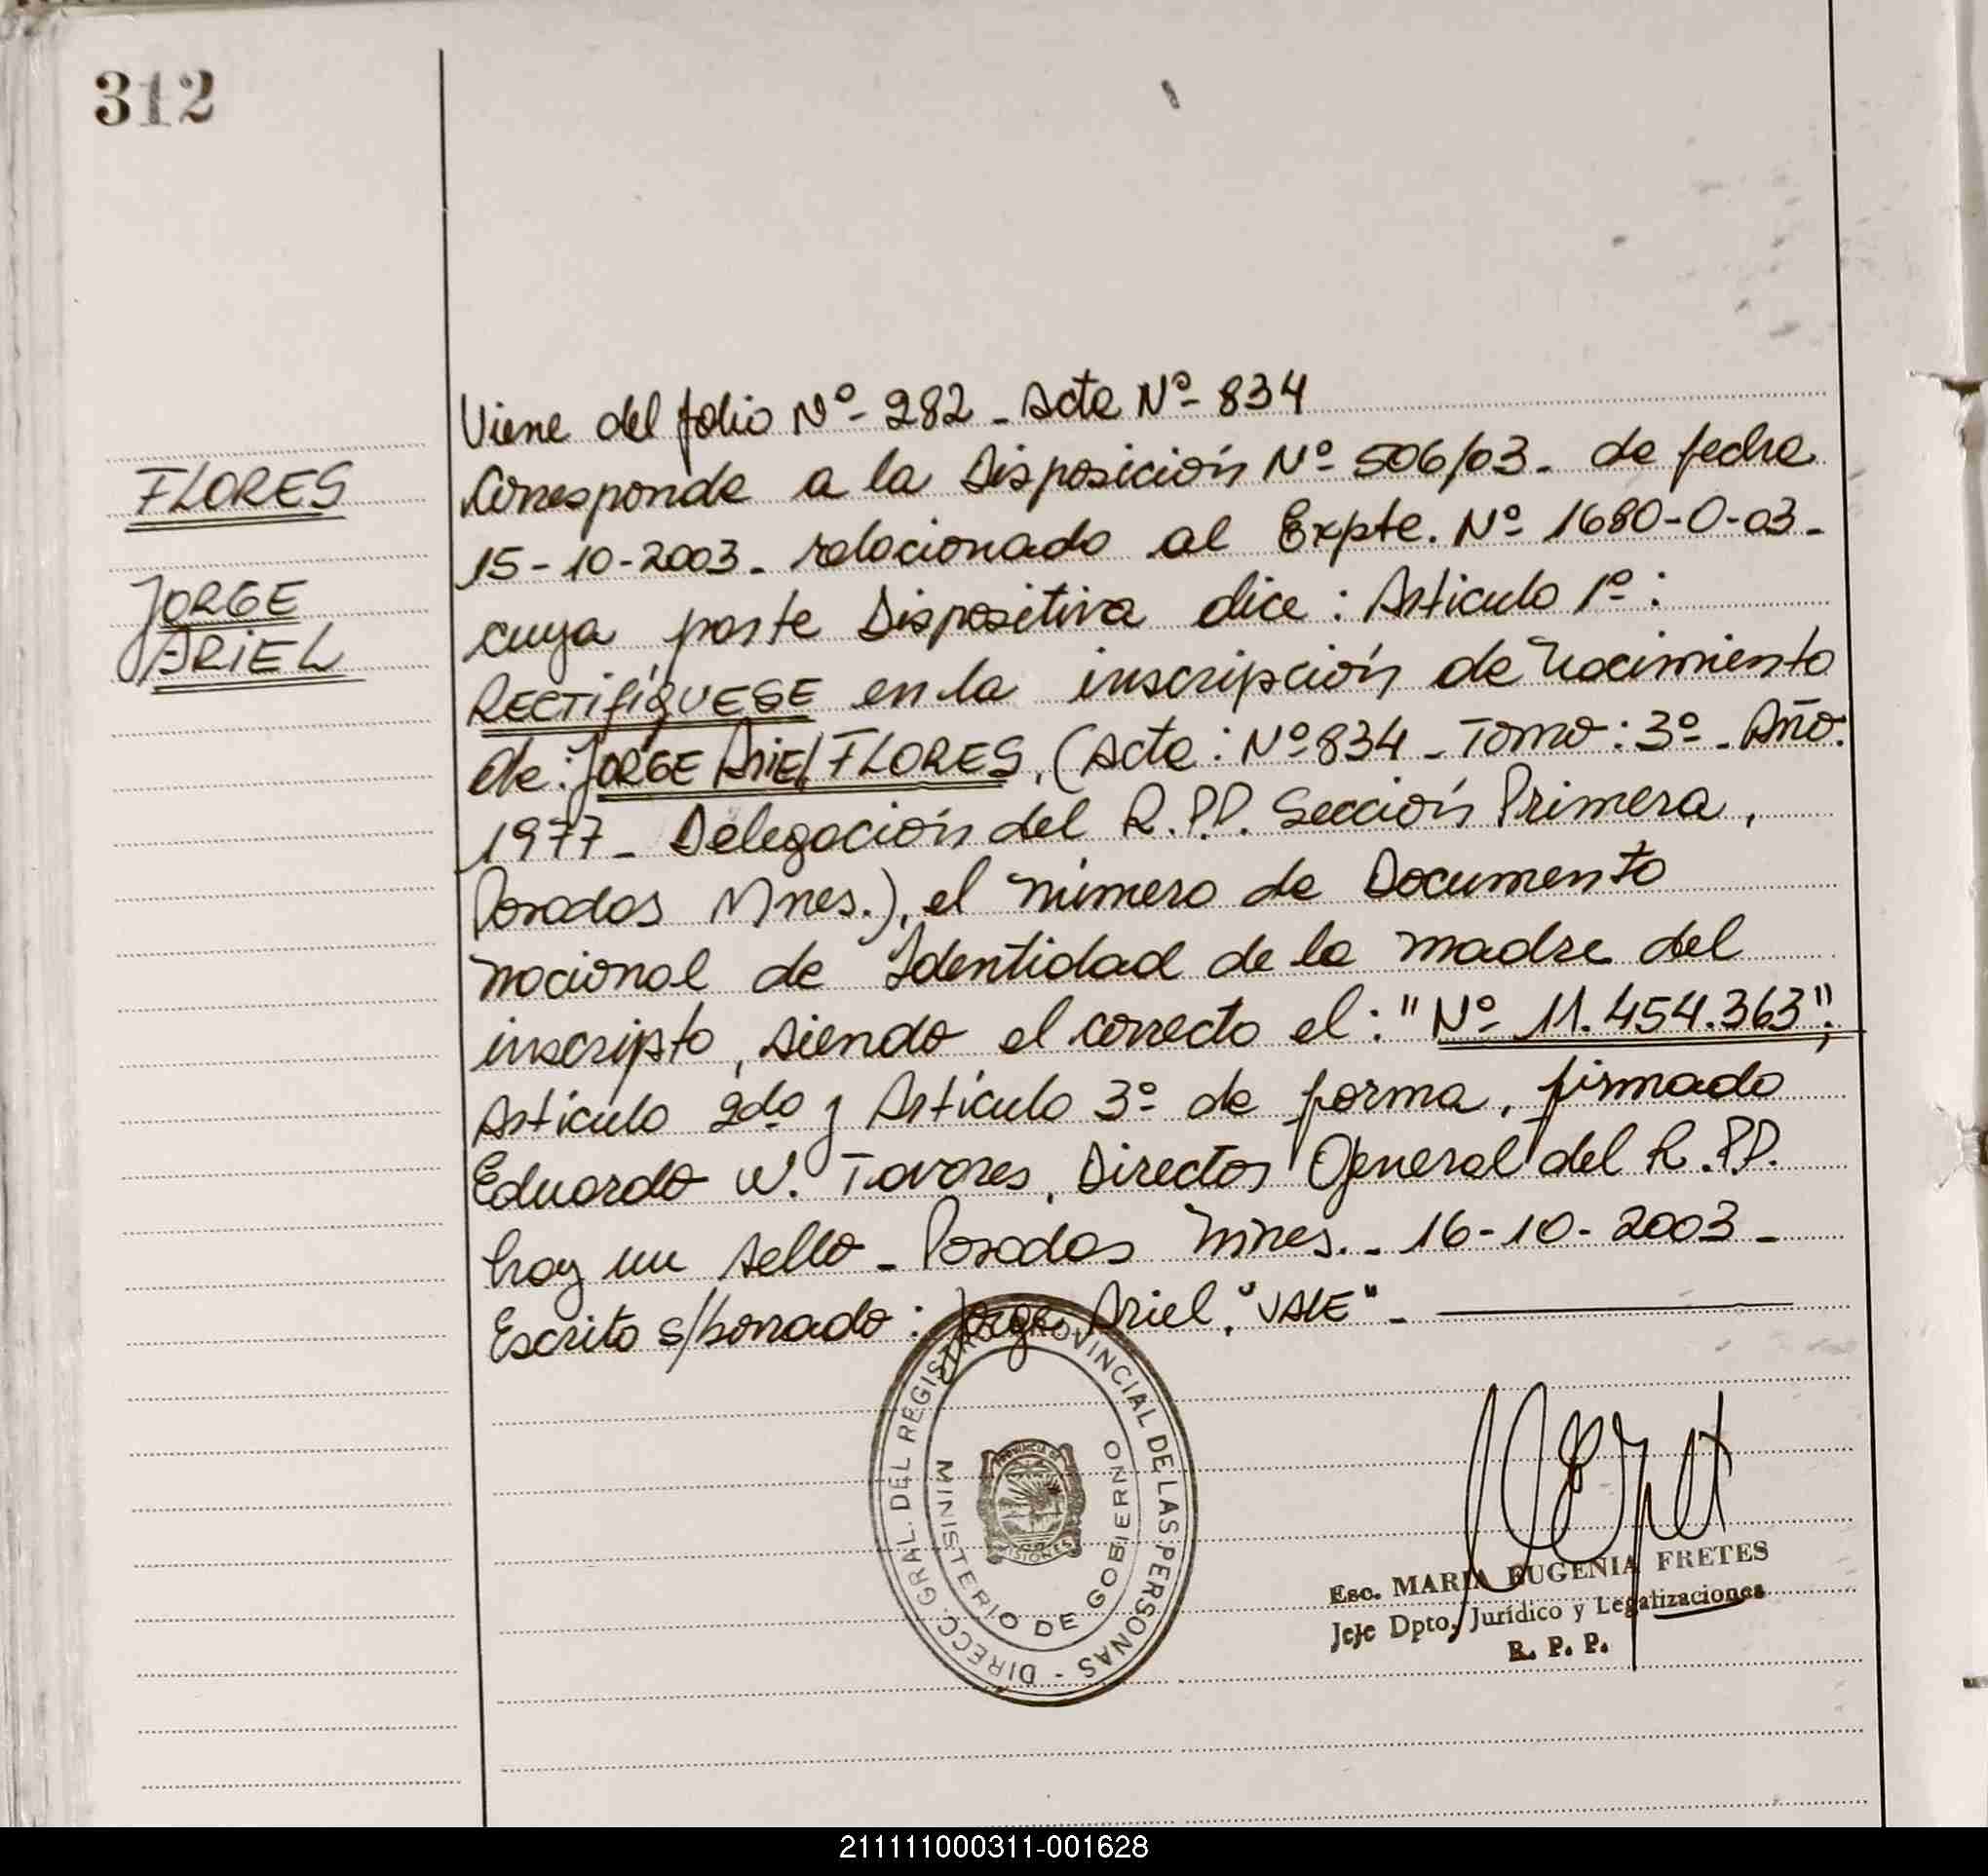 312
FLORES
JORGE
ARIEL
Viene del folio Nº- 282 - Acta Nº- 834
Corresponde a la Disposición Nº- 506/03 - de fecha
15-10-2003 - relacionado al Expte. Nº- 1680-O-03 -
cuya parte Dispositiva dice: Artículo 1º:
RECTIFÍQUESE en la inscripción de Nacimiento
de: JORGE Ariel FLORES, (Acta: Nº 834 - Tomo: 3º - Año:
1977 - Delegación del R.P.P. Sección Primera,
Posadas Mnes.), el número de Documento
Nacional de Identidad de la madre del
inscripto, siendo el correcto el: "Nº- 11.454.363";
Artículo 2do y Artículo 3º de forma, firmado
Eduardo W. Tavares, Director General del R.P.P.
hay un sello - Posadas Mnes. - 16-10-2003 -
Escrito s/borrado: Jorge Ariel, "VALE" -
DIRECC. GRAL. DEL REGISTRO PROVINCIAL DE LAS PERSONAS -
MINISTERIO DE GOBIERNO
PROVINCIA DE
MISIONES
Esc. MARIA EUGENIA FRETES
Jefe Dpto. Jurídico y Legalizaciones
R. P. P.
211111000311-001628